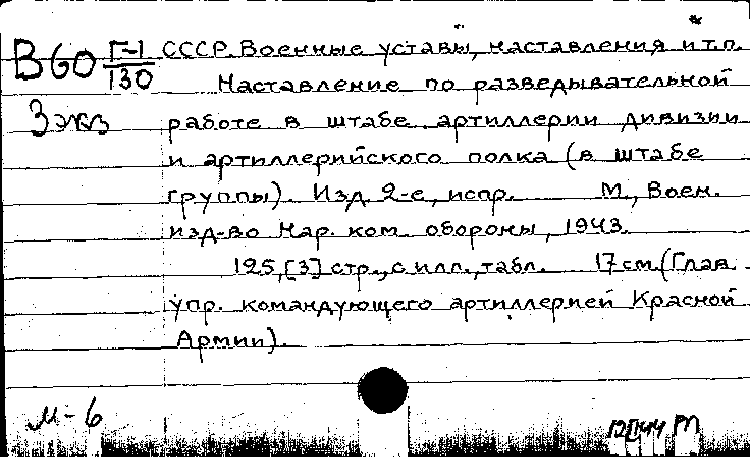 В 60 Г-1/130 СССР. Военные уставы, наставления и т.п.
Наставление по разведывательной
3 экз работе в штабе артиллерии дивизии
и артиллерийского полка (в штабе
группы). Изд. 2-е, испр. М., Воен.
изд-во Нар. ком. обороны, 1943.
125, [3] стр., с илл., табл. 17 см. (Глав.
упр. командующего артиллерией Красной
Армии).
М-6